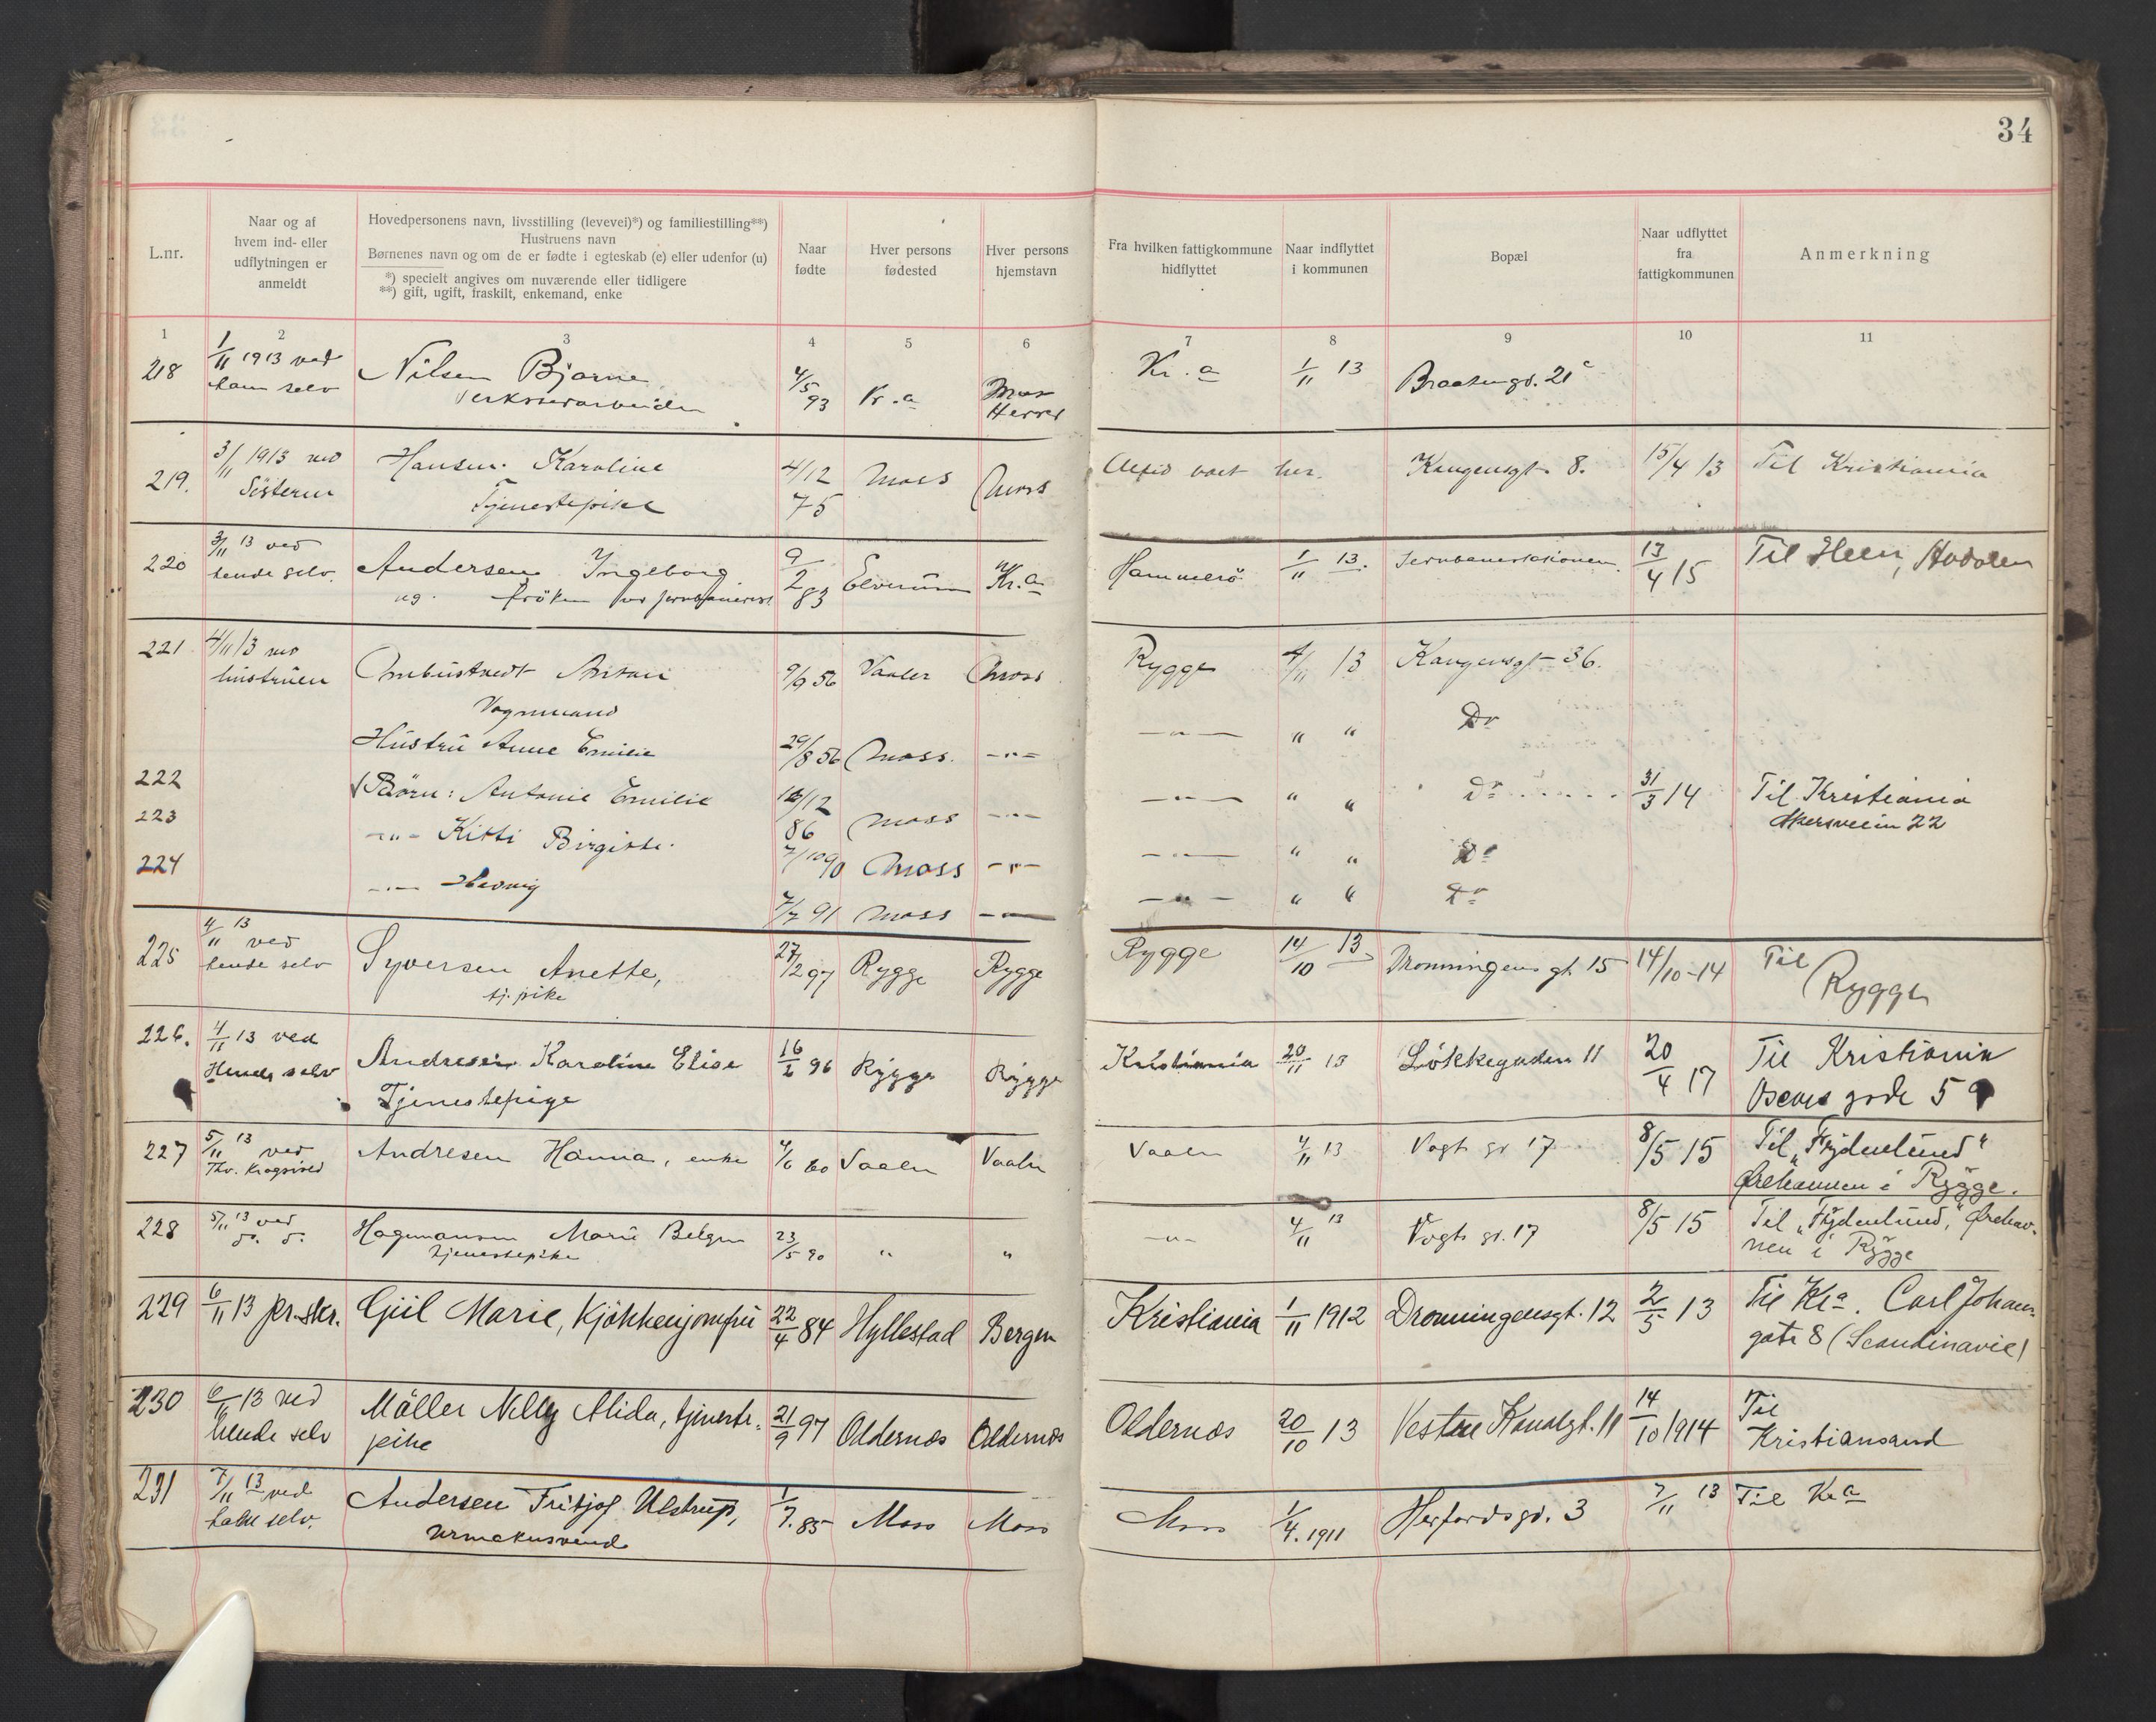 34
L.nr.
Naar og af
hvem ind- eller
udflytningen er
anmeldt
Hovedpersonens navn, livsstilling (levevei)*) og familiestilling**)
Hustruens navn
Børnenes navn og om de er fødte i egteskab (e) eller udenfor (u)
*) specielt angives om nuværende eller tidligere
**) gift, ugift, fraskilt, enkemand, enke
Naar
fødte
Hver persons
fødested
Hver persons
hjemstavn
Fra hvilken fattigkommune
hidflyttet
Naar indflyttet
i kommunen
Bopæl
Naar udflyttet
fra
fattigkommunen
Anmerkning
1 2 3 4 5 6 7 8 9 10 11
218 1/11 1913 ved Nilsen Bjarne 4/5 93 Kr.a Moss Kr.a 1/11 13 Braatengd. 21c
ham selv Herred
219. 3/11 1913 ved Hansen Karoline 4/12 75 Moss Moss Altid vært her. Kongensgt 8. 15/4 13 Til Kristiania
Søsteren Tjenestepike
220 3/11 13 ved Andersen Ingeborg 9/2 83 Elverum Kr.a Hammerö 1/11 13. Jernbanestationen 13/4 15 Til Heen,
hende selv. ug. frøken
221 4/11 13 ved Anton 9/9 56 Vaaler Moss Rygge 4/11 13 Kongensgt 36.
hustruen Vognmand
Hustru Anne Emilie 29/8 56 Moss. -"- -"- " " Do
222 Børn: Antonie Emilie 12 86 Moss -"- -"- " " Do 31/3 14 Til Kristiania
Akersveien 22
223 -"- Kitti Birgitte. 7/10 90 Moss -"- -"- " " Do
224 -"- Hedvig 7/7 91 Moss -"- -"- " " Do
225 4/11 13 ved Syversen Anette, 27/12 97 Rygge Rygge Rygge 14/10 13 Dronningens gt. 15 14/10-14 Til Rygge
hende selv tj. pike
226. 4/11 13 ved Andresen Karoline Elise 16/2 96 Rygge Rygge Kristiania 20/11 13 Løkkegaden 11 20/4 17 Til Kristiania
Hende selv Tjenestepige Oscars gade 59
227 5/11 13 ved Andresen Hanna, enke 4/6 60 Vaaler Vaaler Vaaler 4/11 13 Vogts gd 17 8/5 15 Til "Frydenlund"
Thv. Krogsved Ørehavnen i Rygge.
228 5/11 13 ved Hagemansen Marie 23/5 90 " " -"- 4/11 13 Vogts gd. 17 8/5 15 Til "Frydenlund," Ørehav-
do. do. tjenestepike nen i Rygge
229 6/11 13 pr. skr. Giil Marie, Kjøkkenjomfru 22/4 84 Hyllestad Bergen Kristiania 1/11 1912 Dronningensgt. 12 2/5 13 Til Kra. Carl Johans-
gate 8 (Scandinavie)
230 6/11 13 ved Møller Nelly Alida, tjeneste- 21/9 97 Oddernes Oddernes Oddernes 20/10 13 Vestre Kanalgt. 11 14/10 1914 Til
hende selv pike Kristiansand
231 7/11 13 ved Andersen Fritjof Ulstrup, 1/7. 85 Moss Moss Moss 1/4. 1911 Herfordsgd. 3 7/11 13 Til Kra
ham selv. Urmakersvend